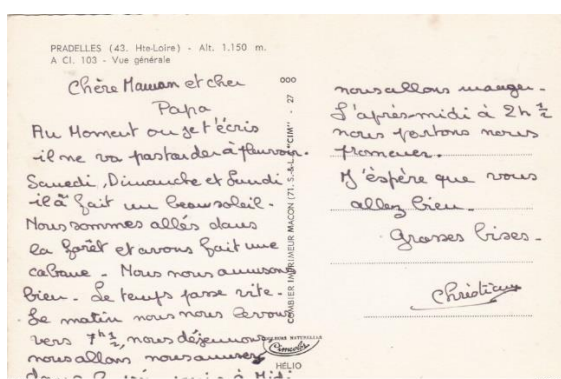 PRADELLES (43. Hte-Loire) - Alt. 1.150 m.
A CI. 103 - Vue générale
Chère Maman et cher
Papa
Au Moment ou je t'écris
il ne va pas tarder à pleuvoir.
Samedi, Dimanche et Lundi
il à fait un beau soleil.
Nous sommes allés dans
la forêt et avons fait une
cabane - Nous nous amusons
bien - Le temps passe vite.
Le matin nous nous levons
vers 7h 1/2, nous déjeunons
nous allons nous amuser
à Midi
COMBIER IMPRIMEUR MACON (71. S.-&-L.) "CIM" - 27
Cimcolor
HÉLIO
nous allons manger.
L'après-midi à 2h 1/2
nous partons nous
promener.
J'éspère que vous
allez bien.
Grosses bises.